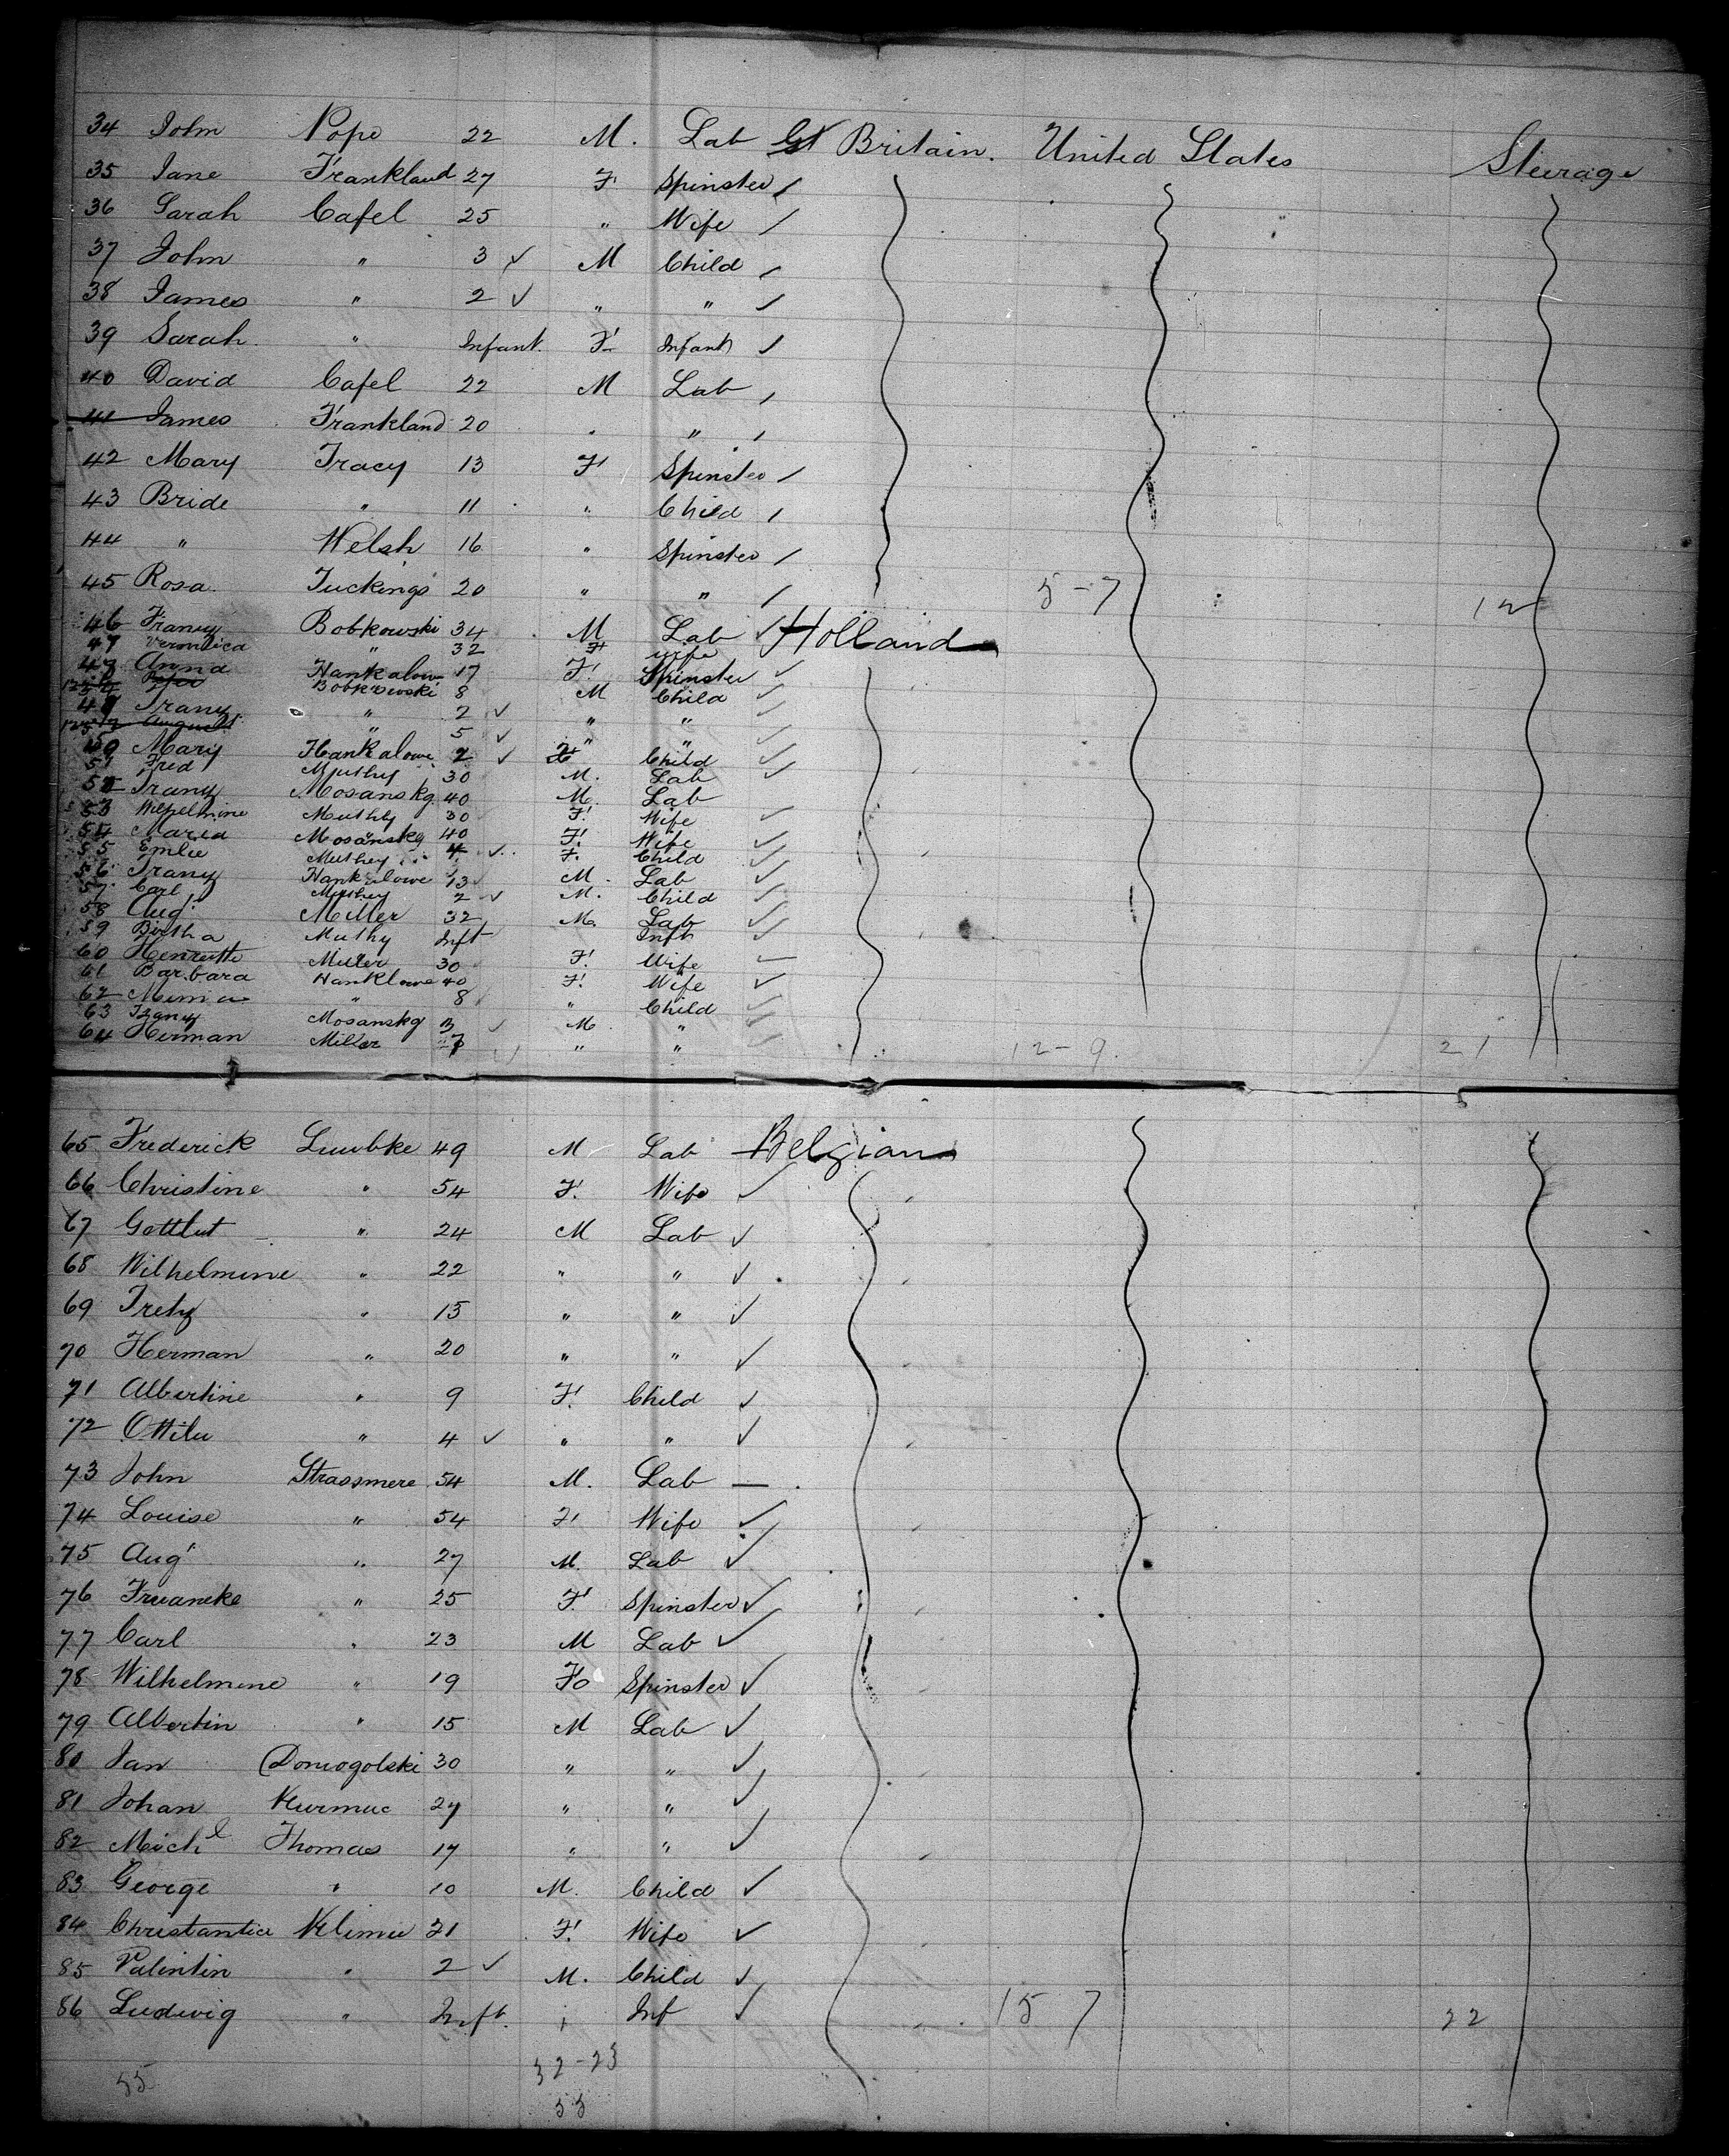 34 John Pope 22 M. Lab Gt Britain. United States Steerage
35 Jane Frankland 27 F Spinster
36 Sarah Cafel 25 " Wife
37 John " 3 M Child
38 James " 2 " "
39 Sarah " Infant. F Infant
40 David Cafel 22 M Lab
41 James Frankland 20 " "
42 Mary Tracy 13 F Spinster
43 Bride " 11 " Child
44 " Welsh 16 " Spinster
45 Rosa Tuckings 20 " " 5-7 12
46 Franz Bobkowski 34 M Lab Holland
47 Veronica " 32 F wife
Anna Hankalow 17 F. Spinster
Bobkowski 8 M Child
Franz " 2 " "
August " 5 " "
50 Mary Hankalowe 2 Child
51 Fred Muthy 30 M. Lab
52 Franz Mosanskg 40 M. Lab
53 Wilhelmine Muthy 30 F. Wife
54 Maria Mosanskg 40 F. Wife
55 Emlie Muthey 4 F. Child
56 Franz Hankalowe 13 M. Lab
57 Carl Muthey 2 M. Child
58 Augt Miller 32 M. Lab
59 Birtha Muthy Inft Inft
60 Henrutte Miller 30 F. Wife
61 Barbara Hanklowe 40 F. Wife
62 Minna " 8 " Child
63 Franz Mosanskg M "
64 Herman Miller " " 12-9 21
65 Frederick Luwbke 49 M Lab Belgian
66 Christine " 54 F. Wife
67 Gottlut " 24 M Lab
68 Wilhelmine " 22 " "
69 Fretz " 15 " "
70 Herman " 20 " "
71 Albertine " 9 F. Child
72 Ottilu " 4 " "
73 John Strassmere 54 M. Lab
74 Louise " 54 F Wife
75 Augt " 27 M. Lab
76 Fruancke " 25 F. Spinster
77 Carl " 23 M Lab
78 Wilhelmine " 19 Fo Spinster
79 Albertin " 15 M Lab
80 Jan Domogolski 30 " "
81 Johan Kurmuc 27 " "
82 Michl Thomas 17 " "
83 George " 10 M. Child
84 Christantia Klimu 21 F. Wife
85 Valintin " 2 M. Child
86 Ludwig " Inft. " Inf 15 7 22
55 32-23
55